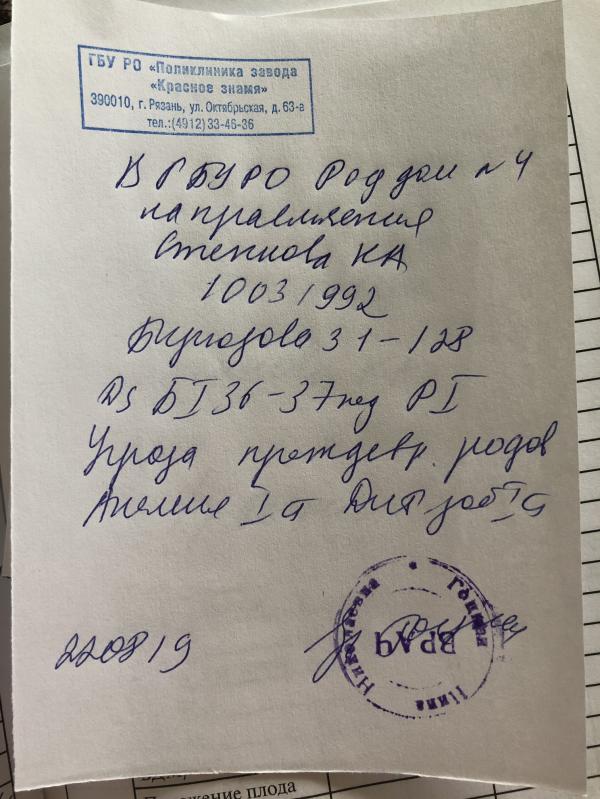 ГБУ РО «Поликлиника завода
«Красное знамя»
390010, г. Рязань, ул. Октябрьская, д. 63-а
тел.:(4912)33-46-36
В ГБУ РО Роддом №4
направляется
КА
10031992
Бирюзова 31-128
Ds БI 36-37нед РI
Угроза преждевр. родов
Анемия I ст
220819
Нина Николаевна
ВРАЧ
Положение плода